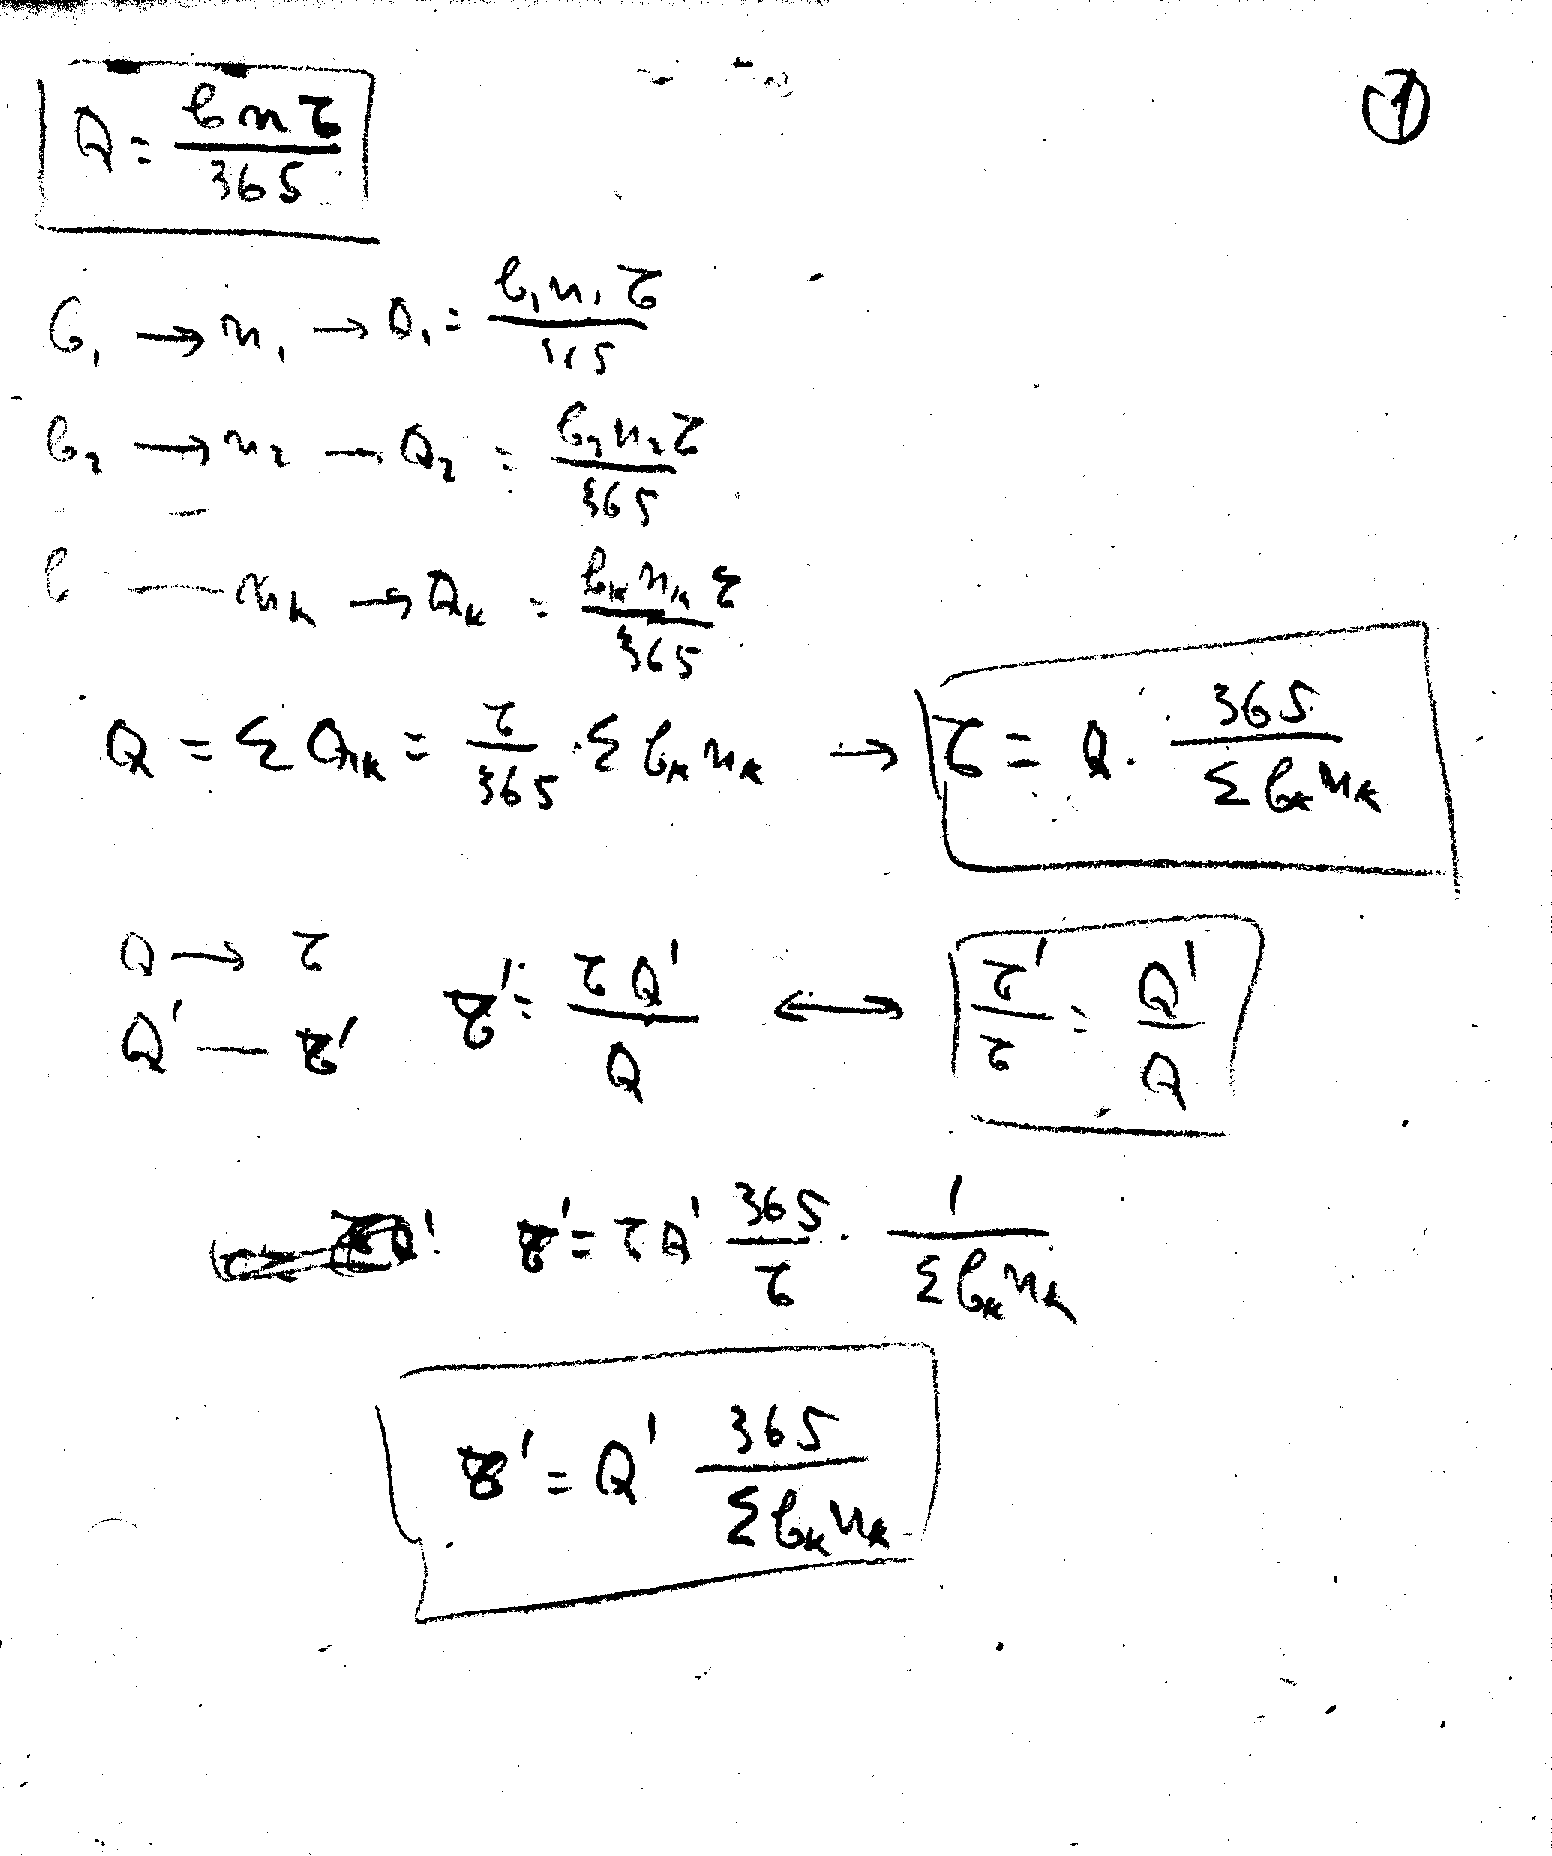 ①
Q = bnτ / 365
b₁ → n₁ → Q₁ = b₁n₁τ / 365
b₂ → n₂ — Q₂ = b₂n₂τ / 365
— —
b — nₖ → Qₖ = bₖnₖτ / 365
Q = Σ Qₖ = τ / 365 · Σ bₖnₖ → τ = Q · 365 / Σ bₖnₖ
Q → τ
Q' — τ' τ' = τQ' / Q ↔ τ' / τ = Q' / Q
τ' = τQ' 365 / τ · 1 / Σ bₖnₖ
τ' = Q' 365 / Σ bₖnₖ